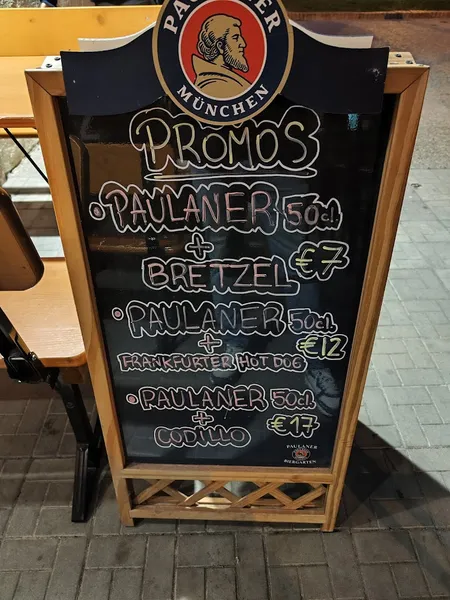 PAULANER
MÜNCHEN
PROMOS
• PAULANER 50cl.
+
BRETZEL €7
• PAULANER 50cl.
+ €12
FRANKFURTER HOT DOG
• PAULANER 50cl.
+ €17
CODILLO
PAULANER
BIERGARTEN